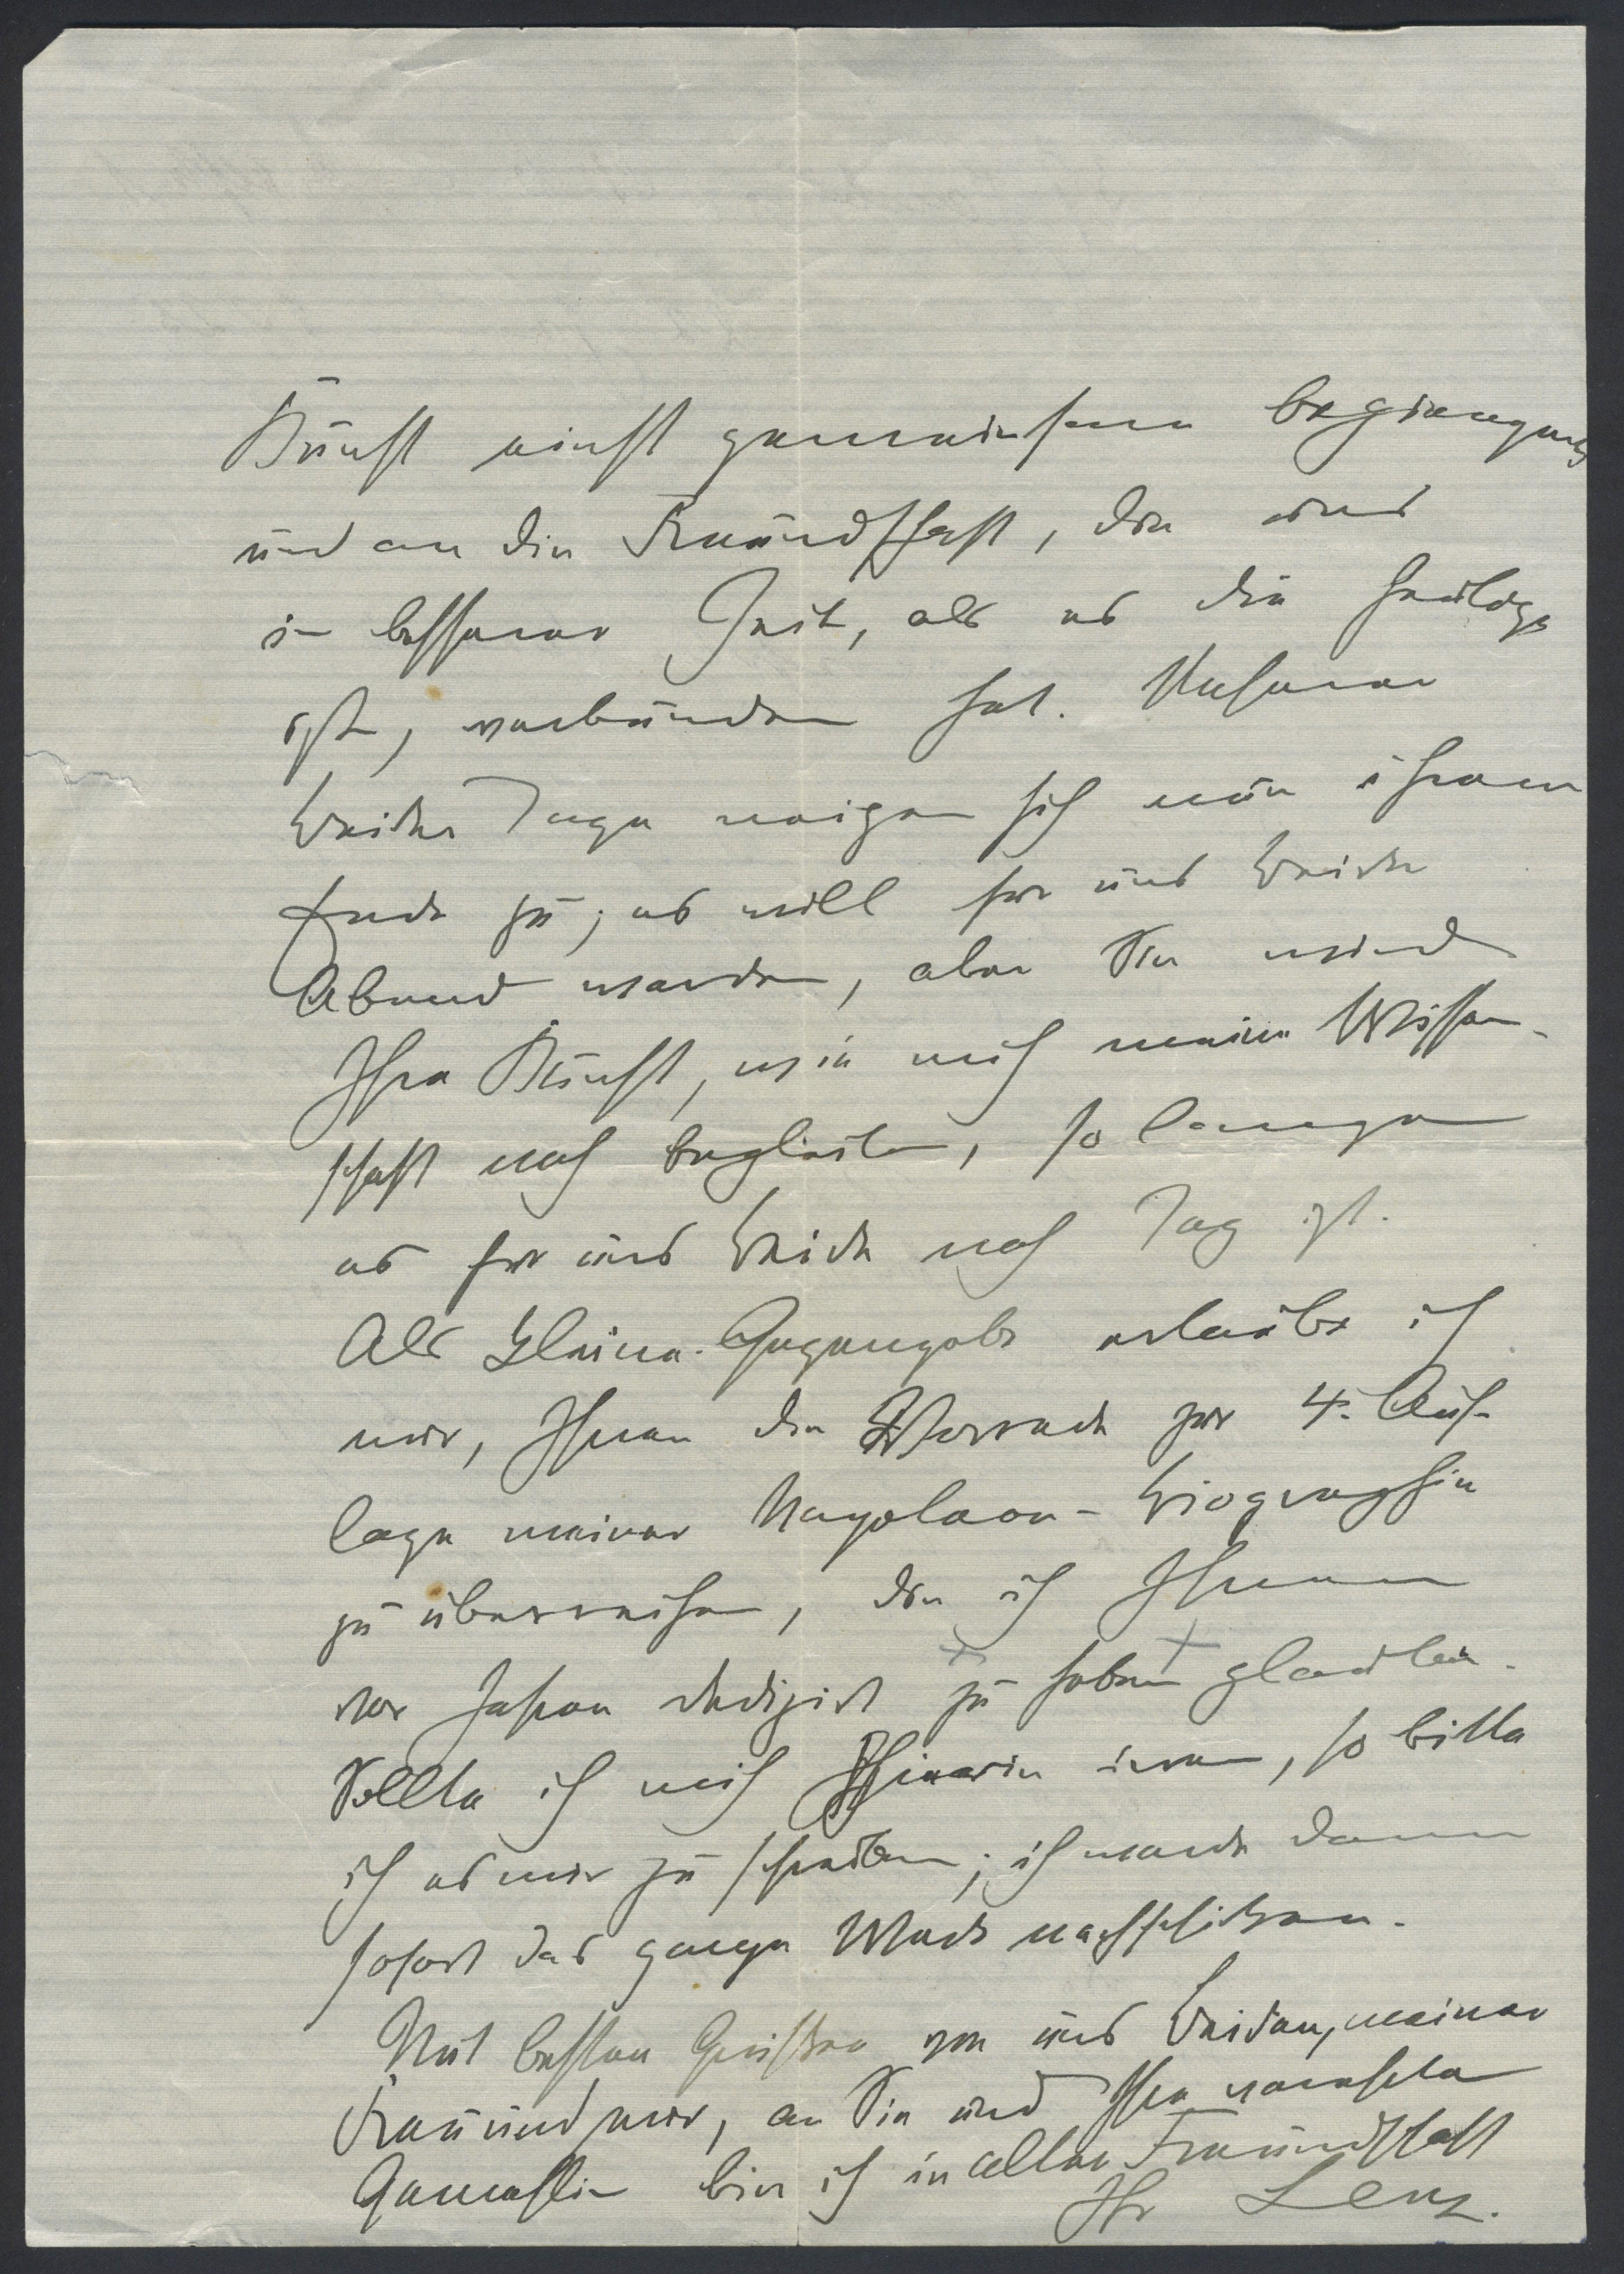 Kunst einst gemeinsam begiengen
und an die Freundschaft, die uns
in besserer Zeit, als es die heutige
ist, verbunden hat. Unserer
Beider Tage neigen sich nun ihrem
Ende zu; es will für uns Beide
Abend werden, aber Sie wird
Ihre Kunst, wie mich meine Wissen-
schaft noch begleiten, so lange
es für uns Beide noch Tag ist.
Als kleine Gegengabe erlaube ich
mir, Ihnen die Vorrede zur 4. Auf-
lage meiner Napoleon-Biographie
zu überreichen, die ich Ihnen
vor Jahren dedizirt zu haben glaube.
Sollte ich mich hierin irren, so bitte
ich es mir zu schreiben; ich werde dann
sofort das ganze Werk nachschicken.
Mit besten Grüssen von uns Beiden, meiner
Frau und mir, an Sie und Ihre verehrte
Gemahlin bin ich in alter Freundschaft
Ihr Lenz.